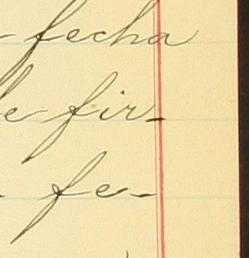 fecha
fir-
fe-